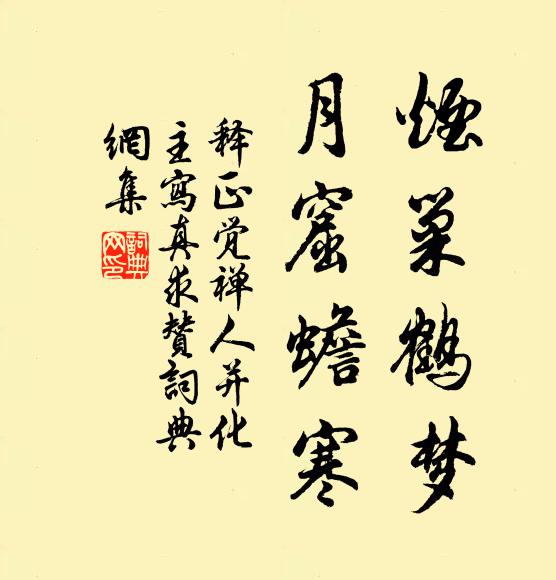 煙巢鹤梦
月窟蟾寒
释正觉禅人并化
主寫真求赞詞典
網集
詞典网印